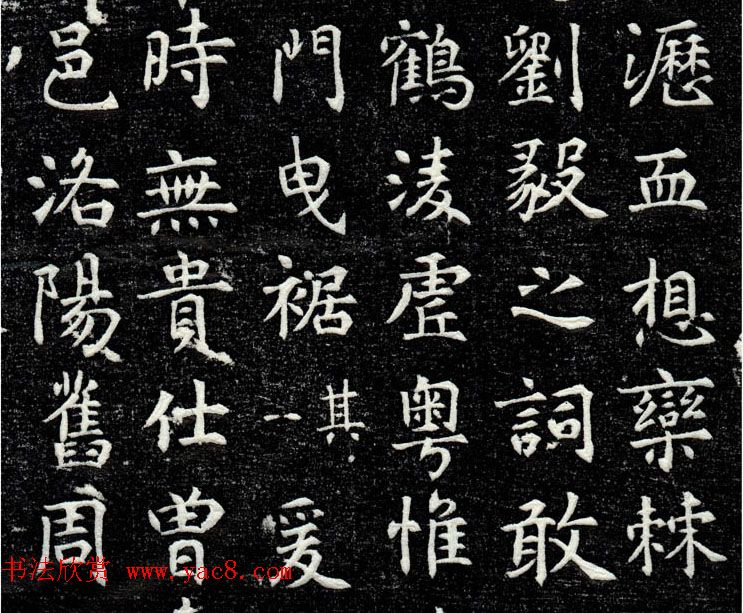 瀝血想欒棘
劉毅之詞敢
鶴淩虛粤惟
門曳裾其一爰
時無貴仕曾
邑洛陽舊周
书法欣赏 www.yac8.com